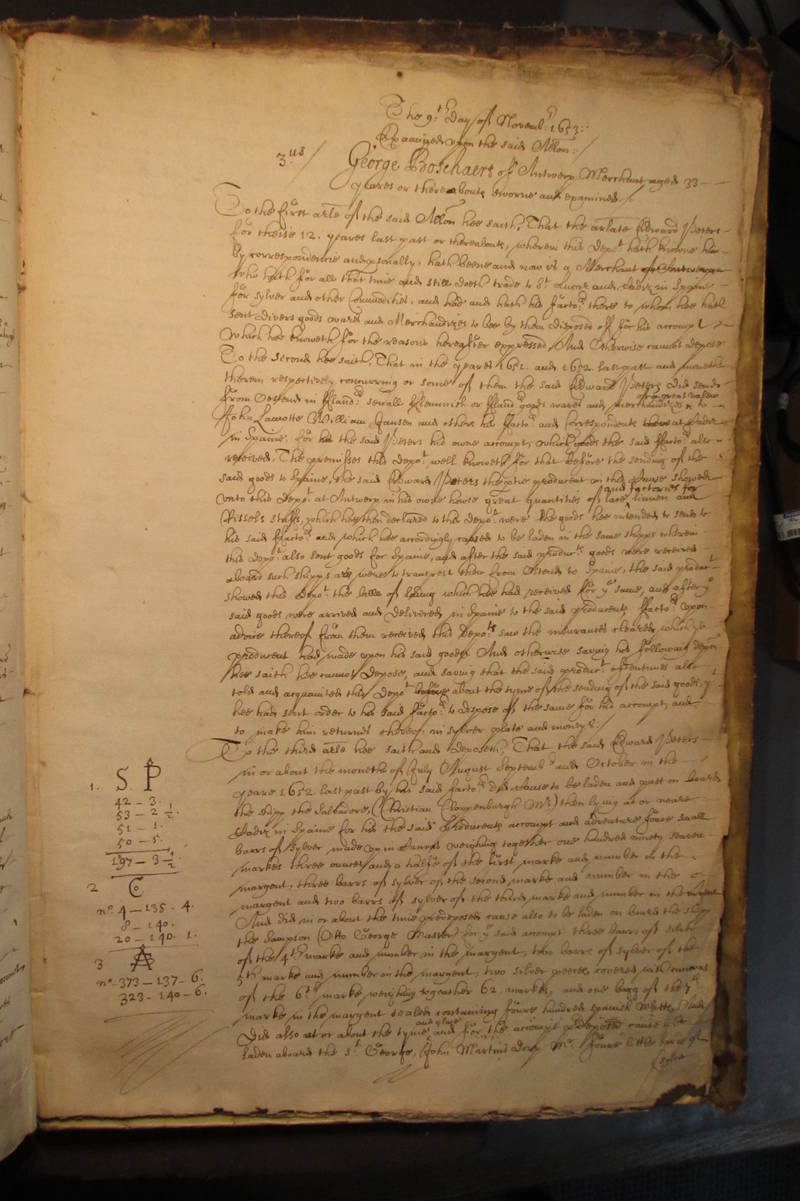 The 9th Day of Novemb: 1653:
Examined upon the said Allon:
3us / George Boschaert of Antwerp Merchant aged 33
yeares or thereabouts sworne and examined /
To the first arle of the said Allon hee saith, That the arlate Edward Peters
for theise 12. yeares last past or thereabouts, wherein this Depot hath knowne him
by correspondencie and personally, hath beene and now is a Merchant of Antwerpe
who hath for all that time and still doeth trade to St Lucar and Cadiz in Spaine
for sylver and other Commodities, and had and hath his factors there to whom hee hath
sent divers goods wares and Merchandizes to bee by them disposed off for his accompt
Which hee knoweth for the reasons hereafter expressed, And otherwise cannot depose
To the second hee saith, That in the yeares 1651 and 1652 last past and moneths
therein respectively concurring or some of them the said Edward Peters did send
from Ostend in fland: severall flemmish or fland: goods wares and merchandizes to
of great vallew
John Lamotte William Jansen and others his factors and Correspondents there at
in Spaine, for the said Peters his owne accompt, which goods the said factors alsoe
received, The premisses this Depot well knoweth for that before the sending of the
said goods to Spaine, the said Edward Peters the producent on this cause showed
and factories for
unto this Depot at Antwerp in his owne howse great quantities of lace linnen and
Rissels stuffs, which hee then declared to this depot were the goods hee intended to send to
his said factors and which hee accordingly caused to be laden in the same shipps wherein
this depot also sent goods for Spaine, and after the said producents goods were received
aboard such shipps as were to transport them from Ostend to Spaine, the said producent
showed this Depot the bills of lading which hee had received for ye same, and after ye
said goods were arrived and delivered in Spaine to the said producents factors upon
advice thereof from them received this Depot saw the
producent had made upon his said goods And otherwise saving his following depon
hee saith hee cannot depose, and saving that the said producent oftentimes alsoe
told and acquainted this Depot before about the tyme of the sending of the said goods, yt
hee had sent order to his said factors to dispose of the same for his accompt, and
to make him returnes thereof in sylver plate and money
To the third arle hee saith and deposeth, That the said Edward Peters
in or about the moneths of July August Septemb and October in the
yeare 1652 last past by his said factors did cause to be laden and putt on board
the shipp the Salvadore, (Christian Cloppenburgh Mr) then lying at or neare
Cadiz in Spaine for his the said Producents accompt and adventure foure small
barrs of sylver made up in weighing together one hundred ninety seaven
markes three ounces and a halfe of the first marke and number in the
margent, three barrs of sylver of the second marke and number in the
margent and two barrs of sylver of the third marke and number in the margent
And did in or about the time predeposed cause also to be laden on board the shipp
the Sampson (Otto George Master) for ye said accompt three barrs of silver
of the 4th marke and number in the margent, two barrs of sylver of the
5th marke and number in the margent, two silver peeces covered with
of the 6th marke weighing togeather 62 markes, and one bagg of the 7th
marke in the margent sealed containing foure hundred spanish
and place
Did also at or about the tyme and for the accompt predeposed cause to be
laden aboard the St George, (John Martins Dorp Mr.) foure little barrs of
sylver
1. S P
42 - 3.
53 - 2 1/2.
51 - 1.
50 - 5.
197 - 3 1/2.
2 C
no. 4 - 135. 4.
8 - 140.
20 - 140. 1.
3
no. 373 - 137 - 6.
323 - 140 - 6.